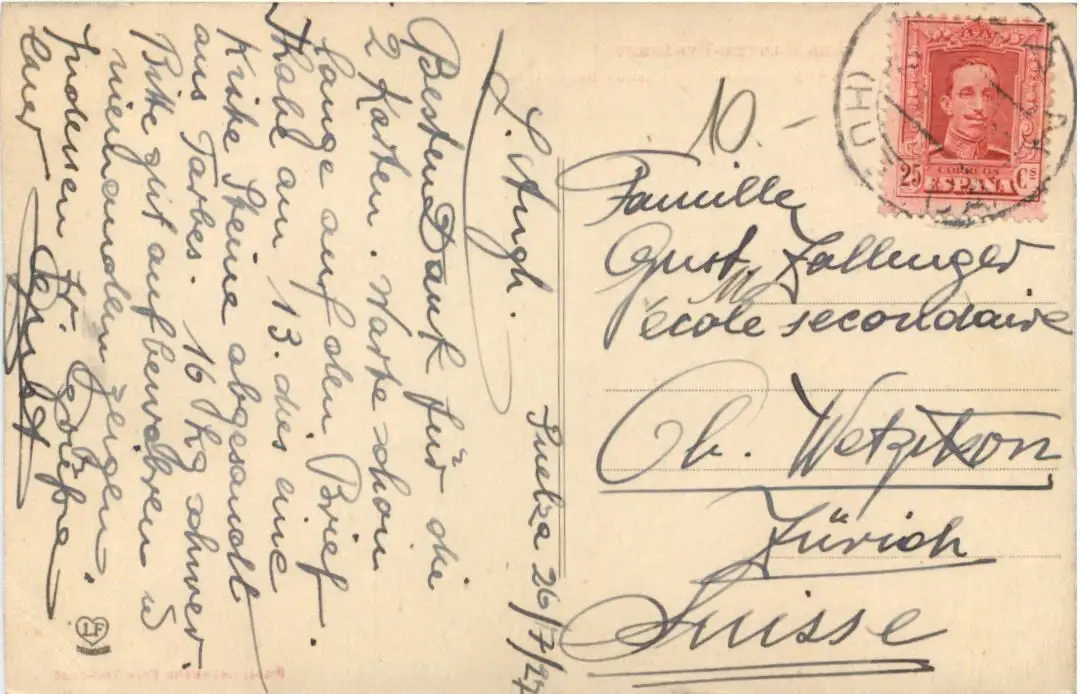 L. Angh.
Besten Dank für die
2 Karten. Warte schon
lange auf den Brief.
Habe am 13. dies eine
Kiste Steine abgesandt
aus Tarbes. 16 kg schwer.
Bitte gut aufbewahren u
niemandem zeigen.
Indessen frdl. Grüsse
Euer
26/7/27
10.-
CORREOS
25 Cs
ESPAÑA
Famille
Gust. Zollinger
école secondaire
Ob. Wetzikon
Zürich
Suisse
LF